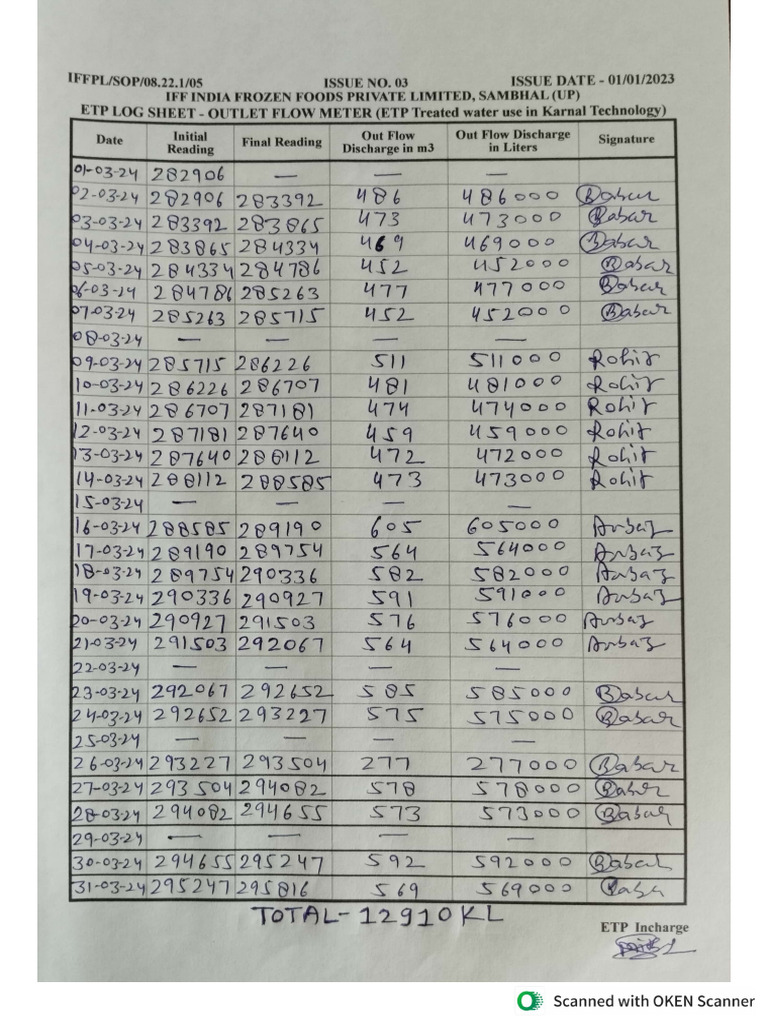 IFFPL/SOP/08.22.1/05 ISSUE NO. 03 ISSUE DATE - 01/01/2023
IFF INDIA FROZEN FOODS PRIVATE LIMITED, SAMBHAL (UP)
ETP LOG SHEET - OUTLET FLOW METER (ETP Treated water use in Karnal Technology)
Date Initial Reading Final Reading Out Flow Discharge in m3 Out Flow Discharge in Liters Signature
01-03-24 282906 — — —
02-03-24 282906 283392 486 486000 Babar
03-03-24 283392 283865 473 473000 Babar
04-03-24 283865 284334 469 469000 Babar
05-03-24 284334 284786 452 452000 Babar
06-03-24 284786 285263 477 477000 Babar
07-03-24 285263 285715 452 452000 Babar
08-03-24 — — — —
09-03-24 285715 286226 511 511000 Rohit
10-03-24 286226 286707 481 481000 Rohit
11-03-24 286707 287181 474 474000 Rohit
12-03-24 287181 287640 459 459000 Rohit
13-03-24 287640 288112 472 472000 Rohit
14-03-24 288112 288585 473 473000 Rohit
15-03-24 — — — —
16-03-24 288585 289190 605 605000 Arbaz
17-03-24 289190 289754 564 564000 Arbaz
18-03-24 289754 290336 582 582000 Arbaz
19-03-24 290336 290927 591 591000 Arbaz
20-03-24 290927 291503 576 576000 Arbaz
21-03-24 291503 292067 564 564000 Arbaz
22-03-24 — — — —
23-03-24 292067 292652 585 585000 Babar
24-03-24 292652 293227 575 575000 Babar
25-03-24 — — — —
26-03-24 293227 293504 277 277000 Babar
27-03-24 293504 294082 578 578000 Babar
28-03-24 294082 294655 573 573000 Babar
29-03-24 — — — —
30-03-24 294655 295247 592 592000 Babar
31-03-24 295247 295816 569 569000
TOTAL-12910KL
ETP Incharge
Scanned with OKEN Scanner